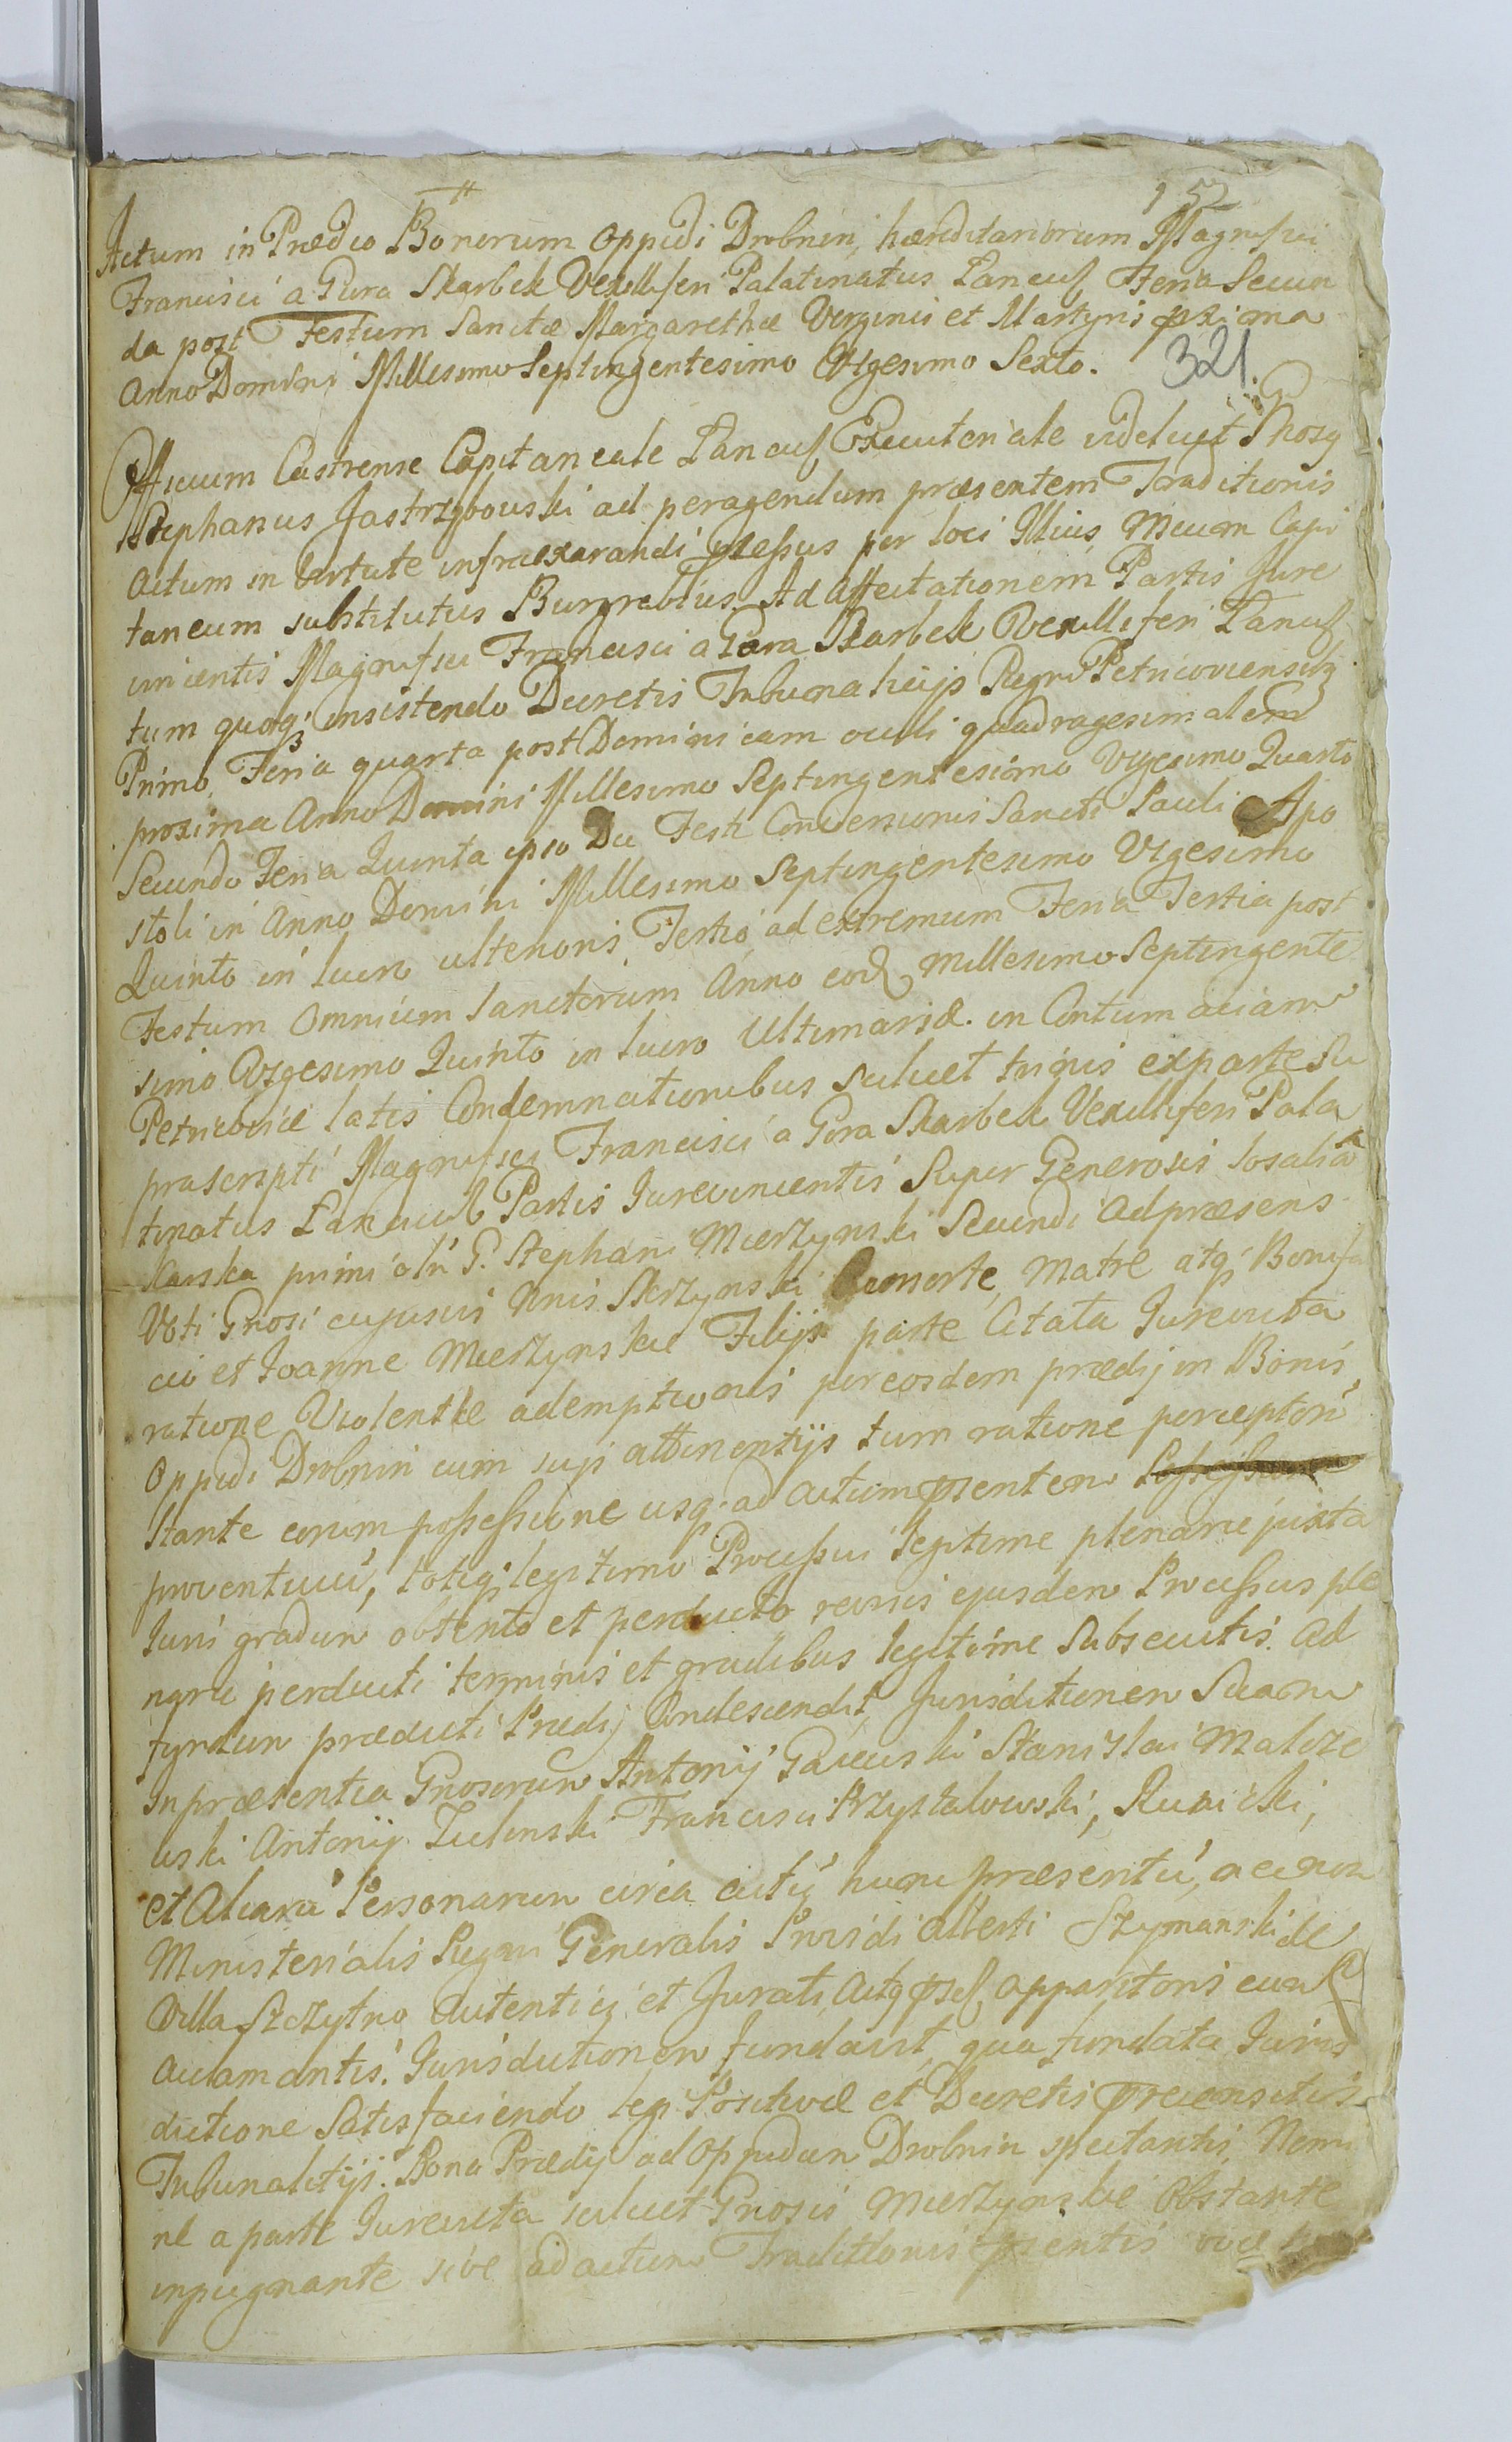 152
Actum in Prædio Bonorum Oppidi Drobnin, hæreditariorum Magnifici
Francisci a Gora Skarbek Vexilliferi Palatinatus Lancic Feria Secun
da post Festum Sanctæ Margarethæ Virginis et Martyris pxima
Anno Domini Millesimo Septingentesimo Vigesimo Sexto.
321.
Officium Castrense Capitaneale Lancic Executoriale videlicet Gnosg
Stephanus Jastrzębowski ad peragendum præsentem Traditionis
Actum in Virtute infraexarandi pcessus per loci Illius Mcum Capi
taneum substitutus Burgrabius. Ad Affectationem Partis Jure
vincentis Magnifici Francisci a Gora Skarbek Vexilliferi Lancic
tum quoq insistendo Decretis Tribunalicijs Regni Petricoviensibg
Primo, Feria quarta post Dominicam oculi quadragesimalem
proxima Anno Domini Millesimo Septingentesimo Vigesimo Quarto
Secundo Feria Quinta ipso Die Festi Conversionis Sancti Pauli Apo
stoli in Anno Domini Millesimo Septingentesimo Vigesimo
Quinto in lucro ulterioris, Tertio, ad extremum Feria Tertia post
Festum Omnium Sanctorum Anno eod Millesimo Septingente
simo Vigesimo Quinto in lucro Ultimariæ. in Contumaciam
Petricoviæ latis Condemnationibus scilicet trinis ex parte Su
prascripti Magnifici Francisci a Gora Skarbek Vexilliferi Pala
tinatus Lancicien Partis Jurevincentis Super Generosis Rosalia
Karska primi oli G. Stephani Mierzynski Secundi ad præsens
Voti Gnosi cujusvis Nnis Skrzynski Consorte, Matre atq Bonifa
cio et Joanne Mierzynskie Filijs parte Citata Jurevicta
ratione Violentæ ademptionis per eosdem prædij in Bonis
Oppidi Drobnin cum suis attinentijs tum ratione perceptorū
stante eorum possessione usq ad actum psentem
proventuū, totiq legitimo Processui legitime plenarie juxta
Juris gradum obtento et perducto reviris ejusdem Processus ple
narie perducti terminis et gradibus legitime subsecutis. Ad
fundum prædicti Prædij Condescendit, Jurisdictionem Suam
In præsentia Gnosorum Antonij Gaiewski Stanislai Malcze
wski Antonij Zielinski Francisci Przystalowski, Rusicki,
et Aliarū Personarum circa actū hunc præsentiū, ac enon
Ministerialis Regni Generalis Providi Alberti Szymanski de
Villa Szczytno Autentici et Jurati Actq psf apparitoris eum
acclamantis. Jurisdictionem fundavit, qua fundata Juris
dictione Satisfaciendo legi Positivæ et Decretis præcensitis
Tribunalitijs. Bona Prædij ad Oppidum Drobnin spectantis, Nemi
ne a parte Jurevicta scilicet Gnosis Mierzynskie Obstante
inpugnante sive ad actum Traditionis psentis